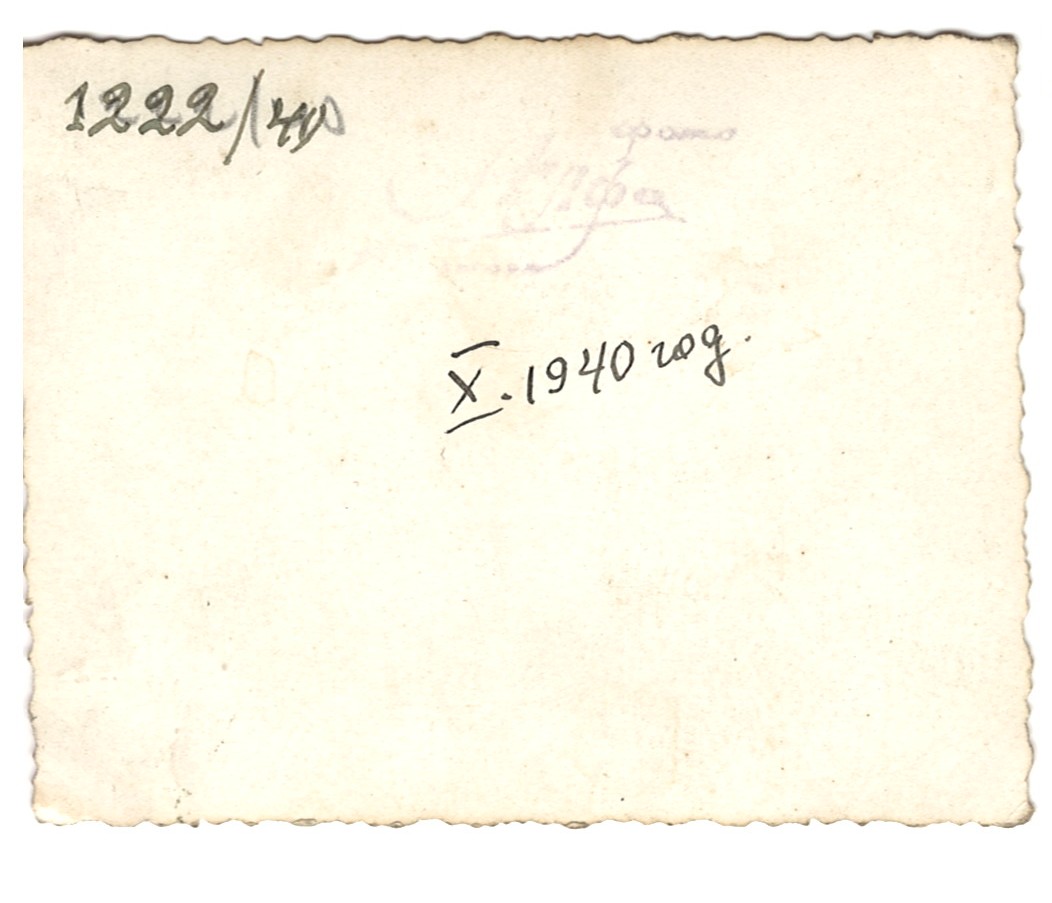 1222/40
фото
X. 1940 год.